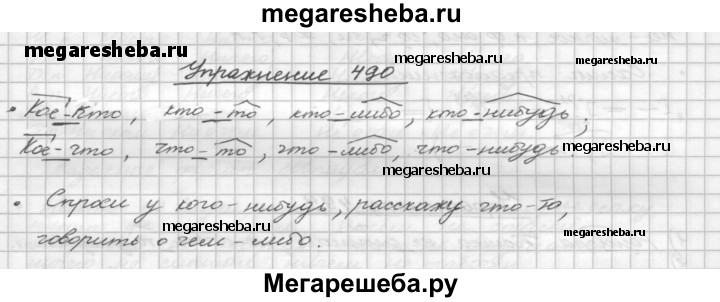 megaresheba.ru
megaresheba.ru
Упражнение 490
megaresheba.ru
• Кое-кто, кто-то, кто-либо, кто-нибудь;
Кое-что, что-то, что-либо, что-нибудь.
megaresheba.ru megaresheba.ru
• Спроси у кого-нибудь, расскажу что-то,
megaresheba.ru
говорить о чем-либо.
megaresheba.ru
Мегарешеба.ру